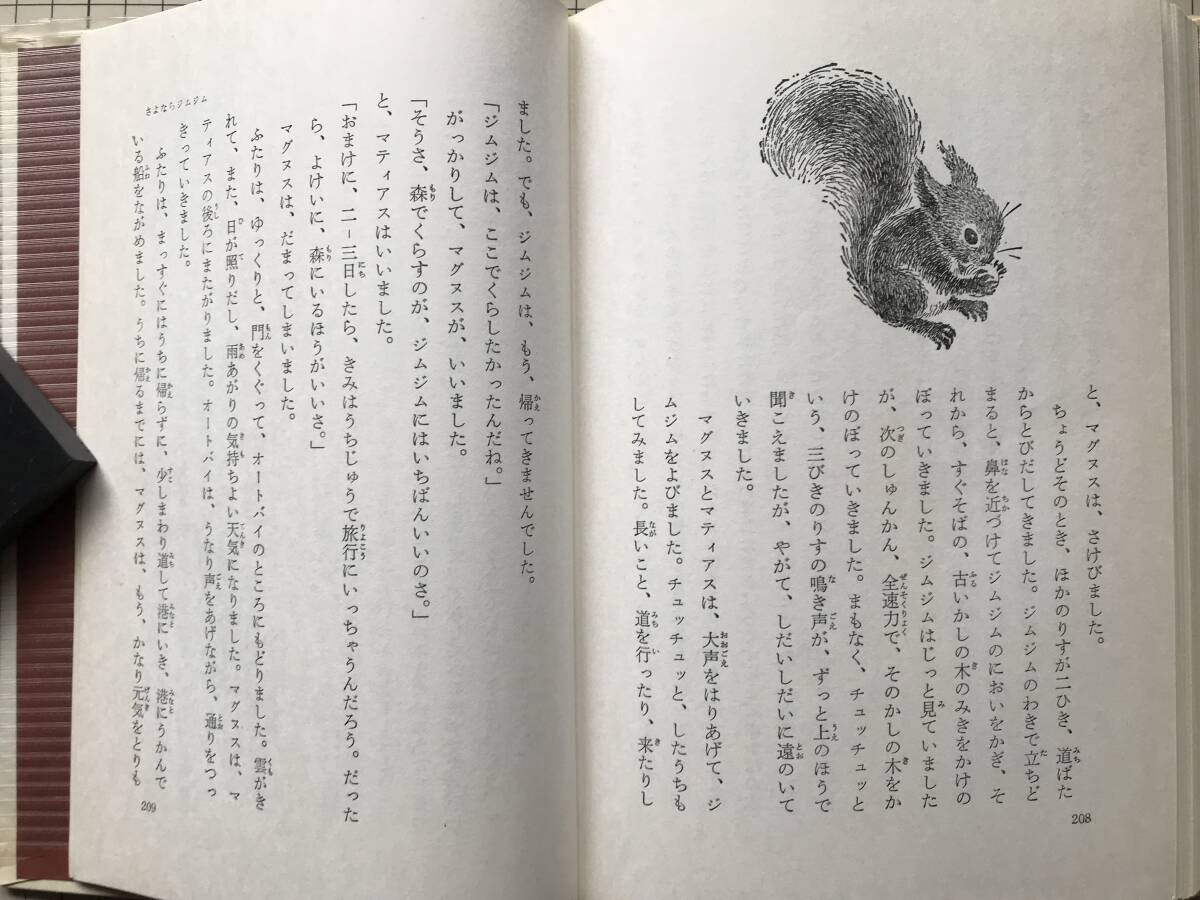 と、マグヌスは、さけびました。
ちょうどそのとき、ほかのりすが二ひき、道ばた
からとびだしてきました。ジムジムのわきで立ちど
まると、鼻を近づけてジムジムのにおいをかぎ、そ
れから、すぐそばの、古いかしの木のみきをかけの
ぼっていきました。ジムジムはじっと見ていました
が、次のしゅんかん、全速力で、そのかしの木をか
けのぼっていきました。まもなく、チュッチュッと
いう、三びきのりすの鳴き声が、ずっと上のほうで
聞こえましたが、やがて、しだいしだいに遠のいて
いきました。
マグヌスとマティアスは、大声をはりあげて、ジ
ムジムをよびました。チュッチュッと、したうちも
してみました。長いこと、道を行ったり、来たりし
208
ました。でも、ジムジムは、もう、帰ってきませんでした。
「ジムジムは、ここでくらしたかったんだね。」
がっかりして、マグヌスが、いいました。
「そうさ、森でくらすのが、ジムジムにはいちばんいいのさ。」
と、マティアスはいいました。
「おまけに、二－三日したら、きみはうちじゅうで旅行にいっちゃうんだろう。だった
ら、よけいに、森にいるほうがいいさ。」
マグヌスは、だまってしまいました。
ふたりは、ゆっくりと、門をくぐって、オートバイのところにもどりました。雲がき
れて、また、日が照りだし、雨あがりの気持ちよい天気になりました。マグヌスは、マ
ティアスの後ろにまたがりました。オートバイは、うなり声をあげながら、通りをつっ
きっていきました。
ふたりは、まっすぐにはうちに帰らずに、少しまわり道して港にいき、港にうかんで
いる船をながめました。うちに帰るまでには、マグヌスは、もう、かなり元気をとりも
さよならジムジム
209